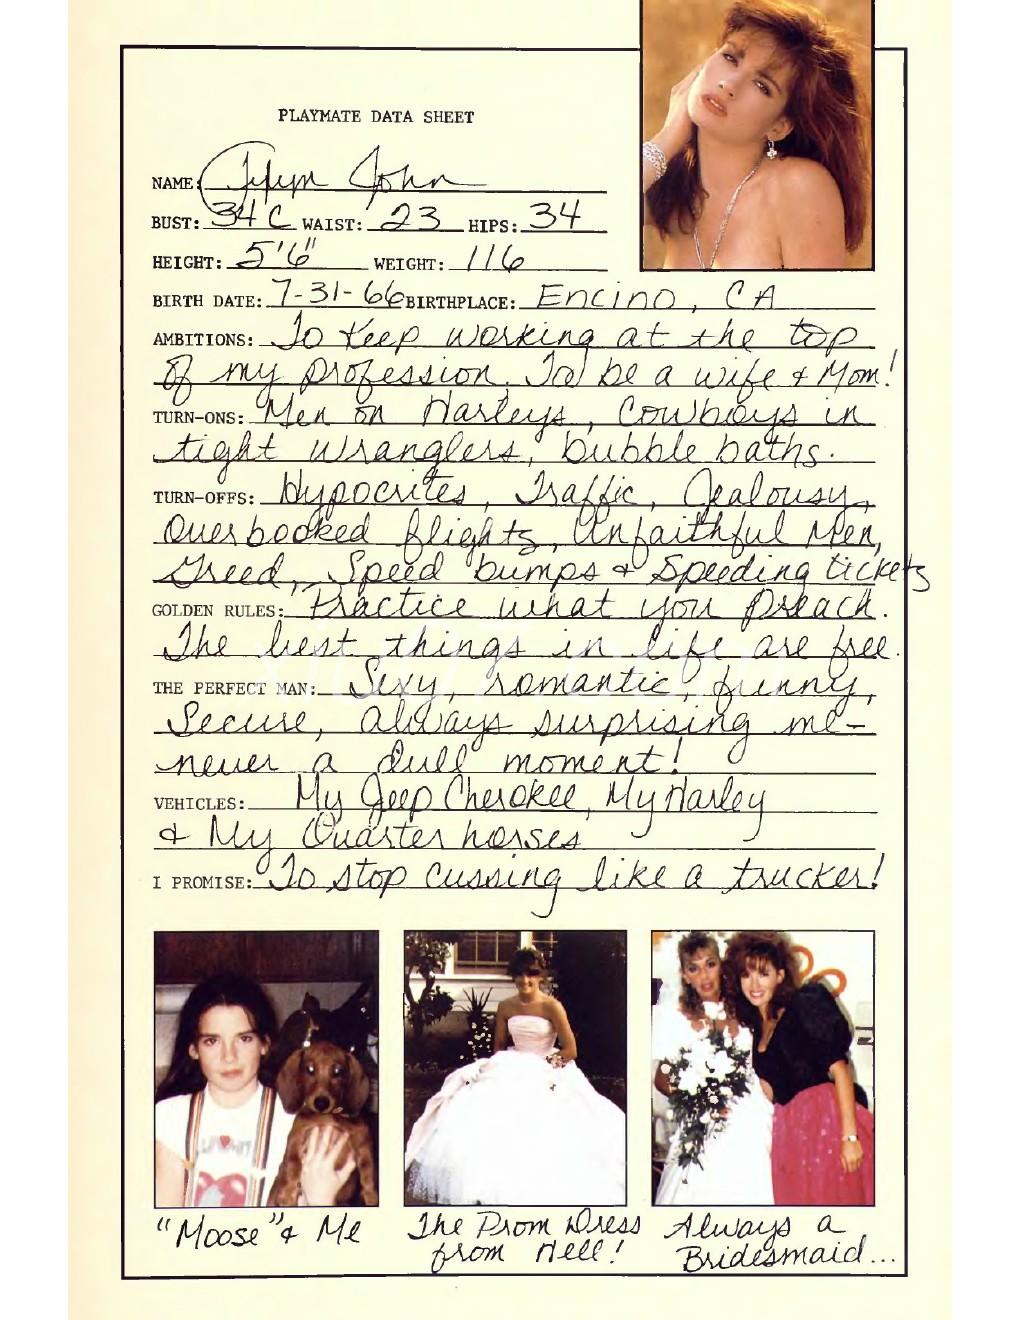 PLAYMATE DATA SHEET
NAME: Tylyn John
BUST: 34 C WAIST: 23 HIPS: 34
HEIGHT: 5'6" WEIGHT: 116
BIRTH DATE: 7-31-66 BIRTHPLACE: Encino, CA
AMBITIONS: To Keep working at the top
of my profession. To be a wife & Mom!
TURN-ONS: Men on Harleys, Cowboys in
tight wranglers, bubble baths.
TURN-OFFS: Hypocrites, Traffic, Jealousy,
Overbooked flights, Unfaithful Men,
Greed, Speed bumps & Speeding tickets
GOLDEN RULES: Practice what you Preach.
The best things in life are free.
THE PERFECT MAN: Sexy, romantic, funny,
Secure, always surprising me-
never a dull moment!
VEHICLES: My Jeep Cherokee, My Harley
& My Quarter horses
I PROMISE: To stop cussing like a trucker!
"Moose" & Me
The Prom Dress
from Hell!
Always a
Bridesmaid...